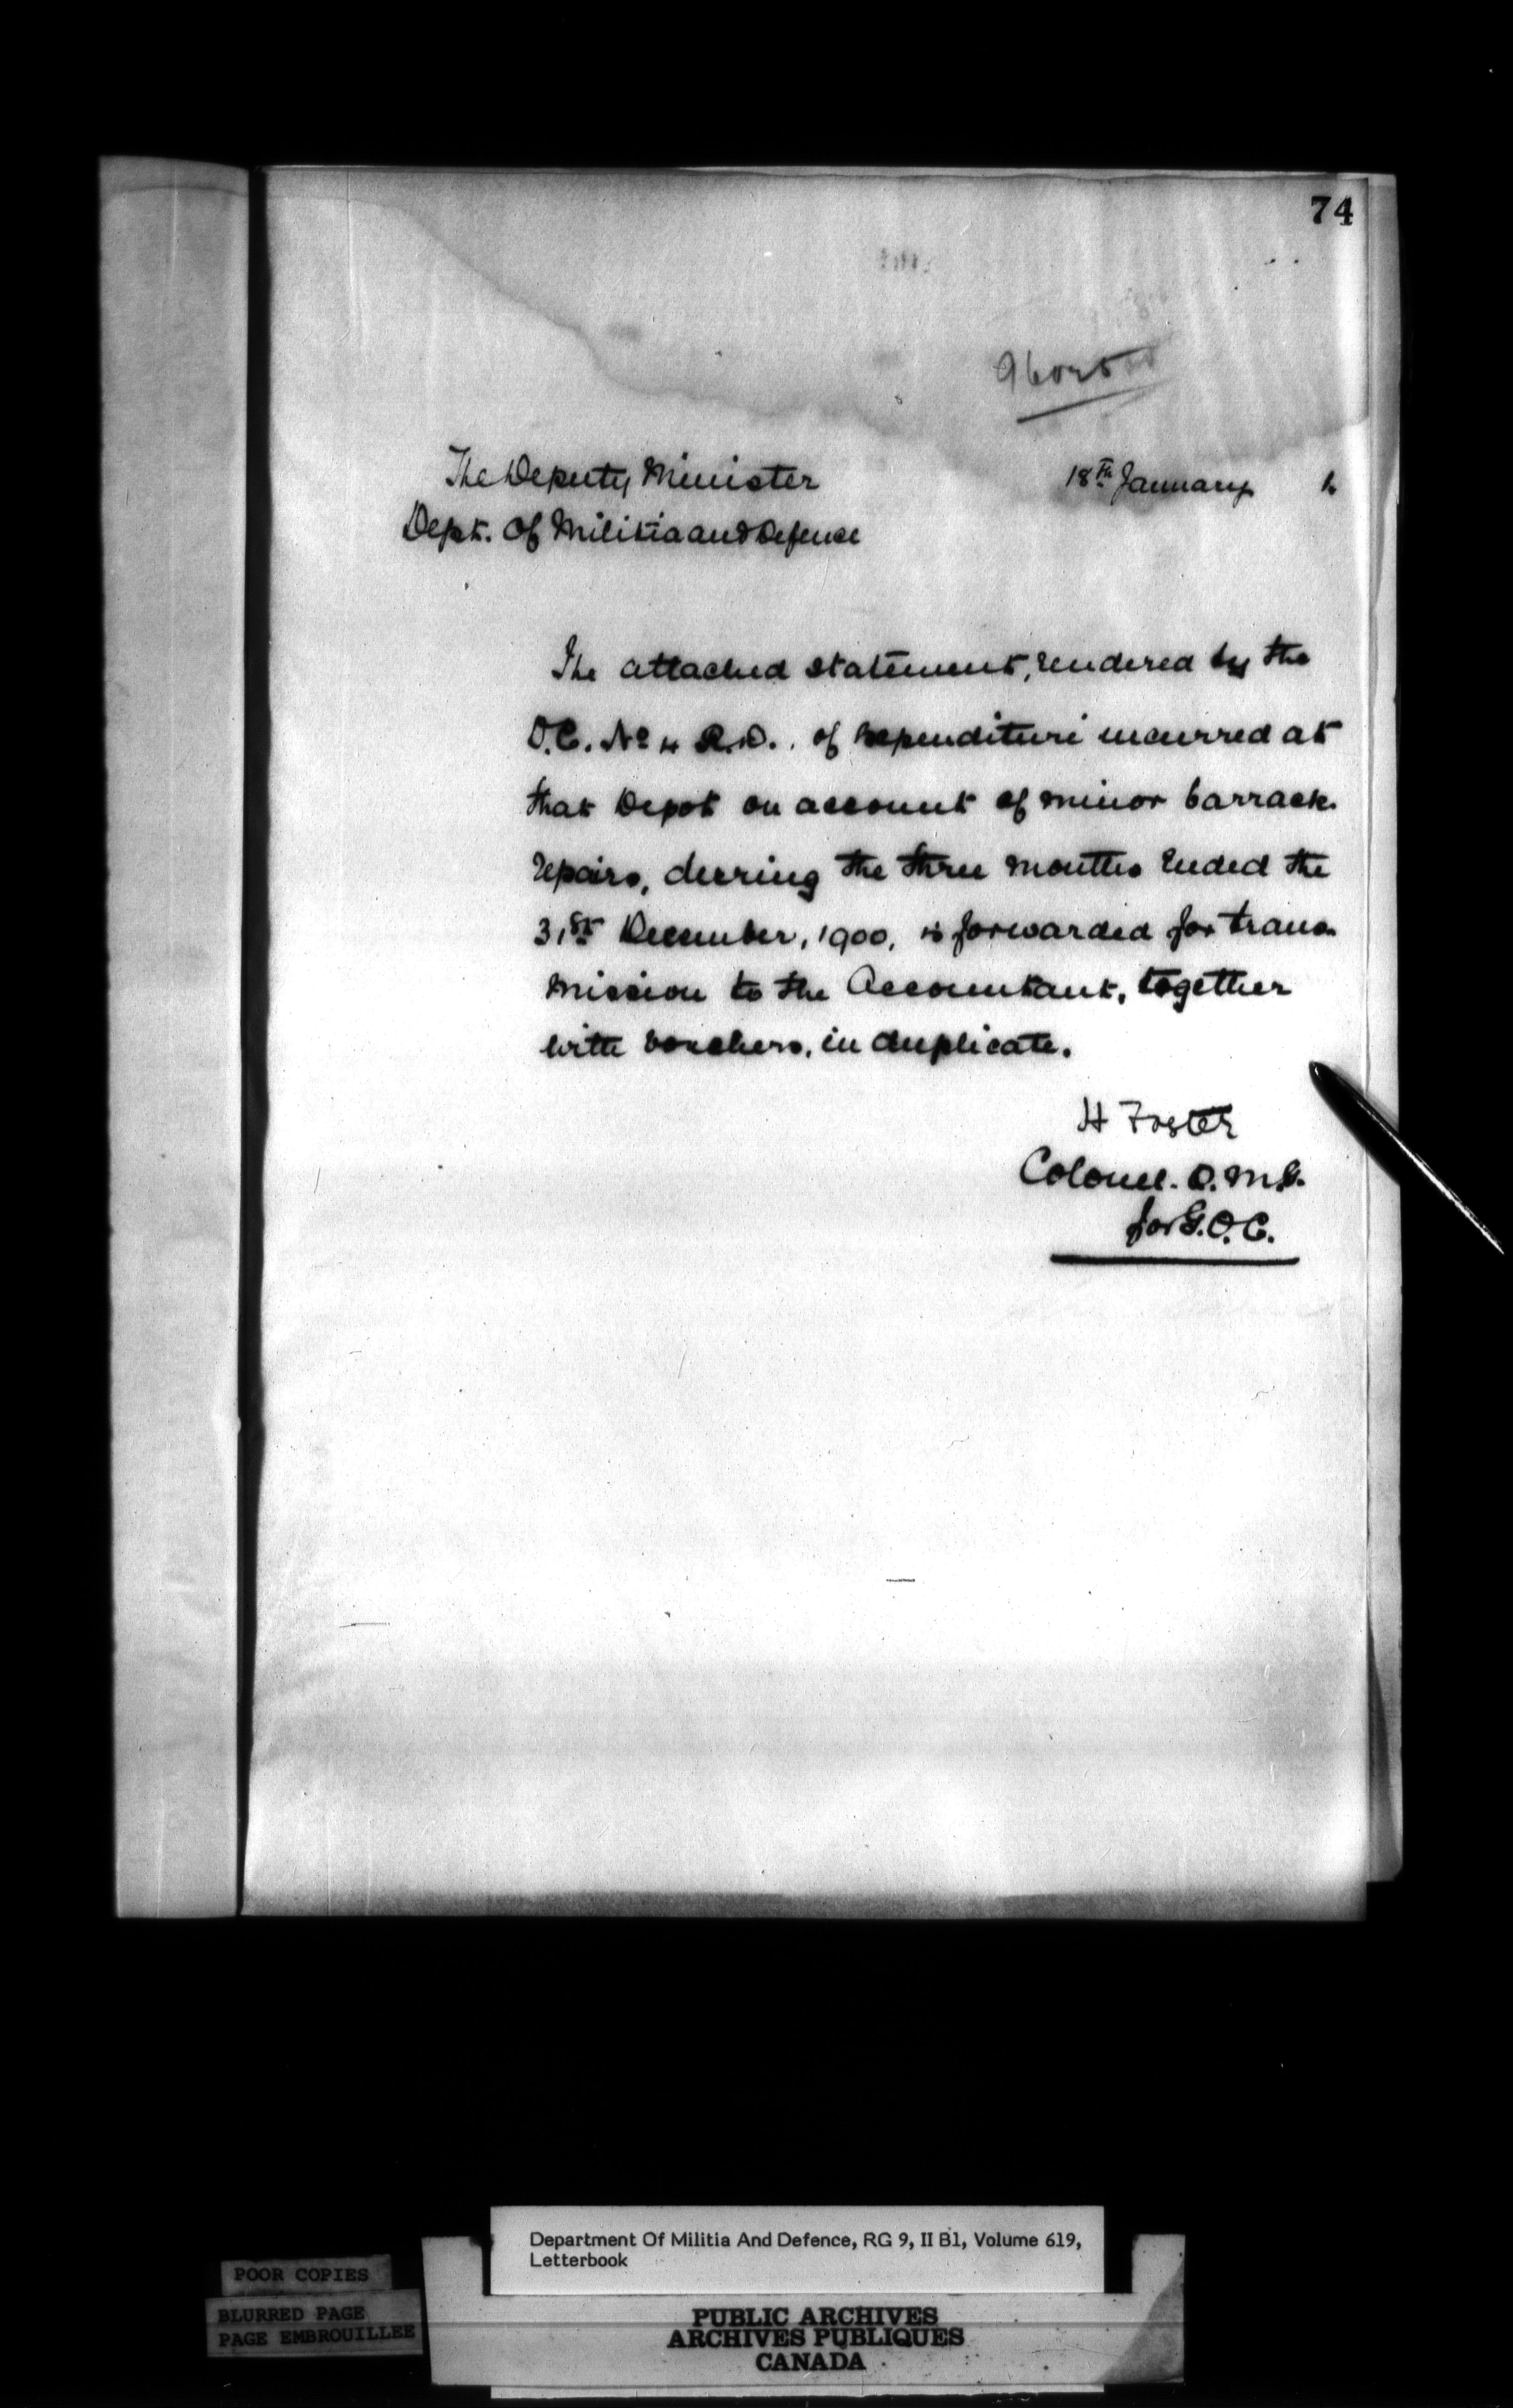 74
The Deputy Minister
18th January 1.
Dept. of Militia and Defence
The attached statement, rendered by the
O.C. No 4 R.D., of Expenditure incurred at
that Depot on account of minor barrack
repairs, during the three months ended the
31st December, 1900, is forwarded for trans-
mission to the Accountant, together
with vouchers, in duplicate.
H Foster
Colonel. Q.M.G.
for G.O.C.
Department Of Militia And Defence, RG 9, II B1, Volume 619,
Letterbook
POOR COPIES
BLURRED PAGE
PAGE EMBROUILLEE
PUBLIC ARCHIVES
ARCHIVES PUBLIQUES
CANADA